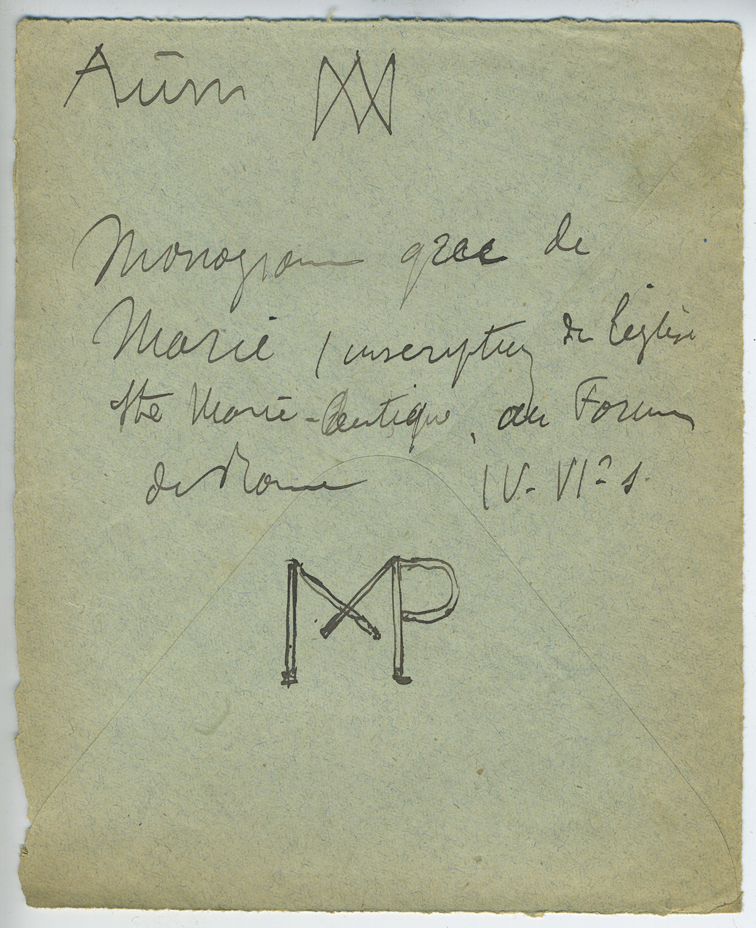 Aūm
Monogramme grec de
Marie / inscription de l'église
Ste Marie-Antique, au Forum
de Rome IV-VIe s.
MP